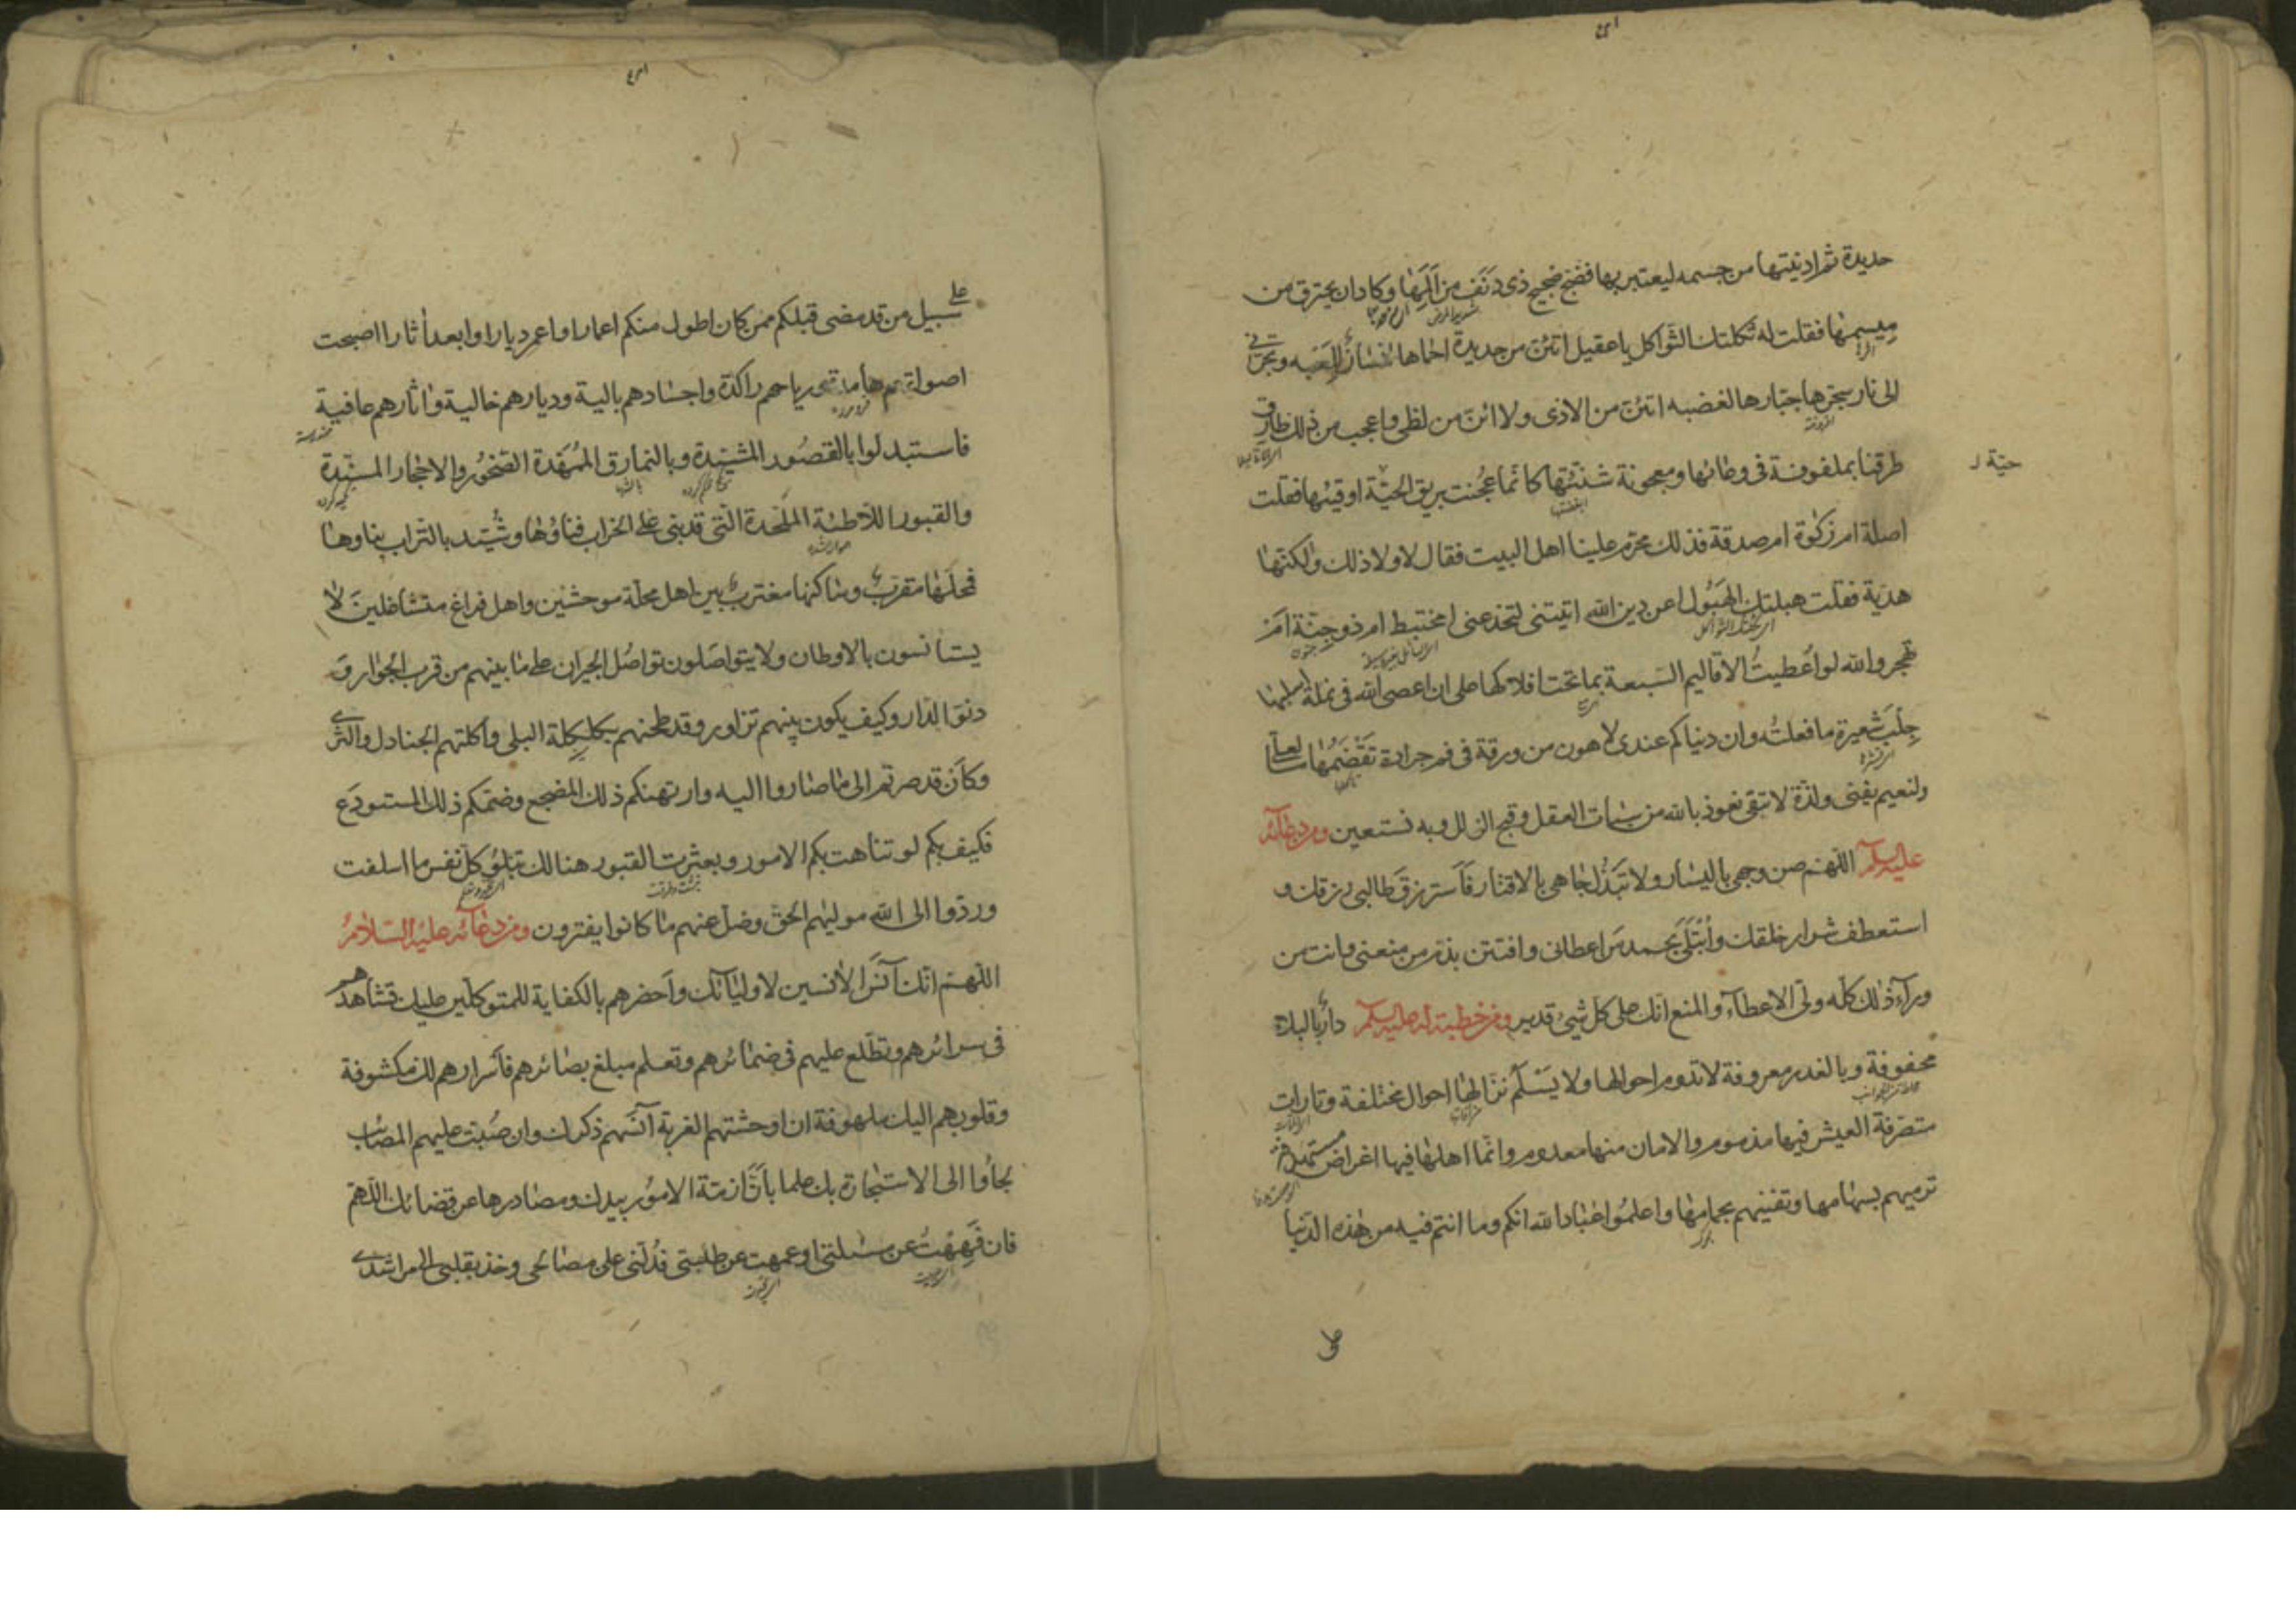 حديدة ثم ادنيتها من جسمه ليعتبر بها فضج ضجيج ذى دنف من المها وكاد ان يحترق من
ميسمها فقلت له ثكلتك الثواكل يا عقيل اتئن من حديدة احماها انسانها للعبه وتجرنى
الى نار سجرها جبارها لغضبه اتئن من الاذى ولا ائن من لظى واعجب من ذلك طارق
طرقنا بملفوفة فى وعائها ومعجونة شنئتها كانما عجنت بريق الحية اوقيئها فقلت
حيّة
اصلة ام زكوة ام صدقة فذلك محرم علينا اهل البيت فقال لا ولا ذلك ولكنها
هدية فقلت هبلتك الهبول اعن دين الله اتيتنى لتخدعنى امختبط ام ذو جنة ام
تهجر والله لو اعطيت الاقاليم السبعة بما تحت افلاكها على ان اعصى الله فى نملة اسلبها
جلب شعيرة ما فعلت وان دنياكم عندى لاهون من ورقة فى فم جرادة تقضمها ما لعلى
ولنعيم يفنى ولذة لا تبقى نعوذ بالله من سيئات العقل وقبح الزلل وبه نستعين ومن دعائه
عليه السلم اللهم صن وجهى باليسار ولا تبذل جاهى بالاقتار فاسترزق طالبى رزقك و
استعطف شرار خلقك وابتلى بحمد من اعطانى وافتتن بذم من منعنى وانت من
ورآء ذلك كله ولى الاعطآء والمنع انك على كل شىء قدير ومن خطبة له عليه السلم دار بالبلاء
محفوفة وبالغدر معروفة لا تدوم احوالها ولا يسلم نزالها احوال مختلفة وتارات
متصرفة العيش فيها مذموم والامان منها معدوم وانما اهلها فيها اغراض مستهدفة
ترميهم بسهامها وتفنيهم بحمامها واعلموا عباد الله انكم وما انتم فيه من هذه الدنيا
على
سبيل من قد مضى قبلكم ممن كان اطول منكم اعمارا واعمر ديارا وابعد اثارا اصبحت
اصواتهم هامدة ورياحهم راكدة واجسادهم بالية وديارهم خالية واثارهم عافية
فاستبدلوا بالقصور المشيدة وبالنمارق الممهدة الصخور والاحجار المسندة
والقبور اللاطئة الملحدة التى قد بنى على الخراب فناؤها وشيد بالتراب بناوها
فمحلها مقترب وساكنها مغترب بين اهل محلة موحشين واهل فراغ متشاغلين لا
يستانسون بالاوطان ولا يتواصلون تواصل الجيران على ما بينهم من قرب الجوار و
دنو الدار وكيف يكون بينهم تزاور وقد طحنهم بكلكله البلى واكلتهم الجنادل والثرى
وكان قد صرتم الى ما صاروا اليه وارتهنكم ذلك المضجع وضمكم ذلك المستودع
فكيف بكم لو تناهت بكم الامور وبعثرت القبور هنالك تبلو كل نفس ما اسلفت
وردوا الى الله موليهم الحق وضل عنهم ما كانوا يفترون ومن دعائه عليه السلام
اللهم انك آنس الانسين لاوليائك واحضرهم بالكفاية للمتوكلين عليك تشاهدهم
فى سرائرهم وتطلع عليهم فى ضمائرهم وتعلم مبلغ بصائرهم فاسرارهم لك مكشوفة
وقلوبهم اليك ملهوفة ان اوحشتهم الغربة آنسهم ذكرك وان صبت عليهم المصائب
لجاوا الى الاستجارة بك علما بان ازمة الامور بيدك ومصادرها عن قضائك اللهم
فان فههت عن مسئلتى او عمهت عن طلبتى فدلنى على مصالحى وخذ بقلبى الى مراشدى